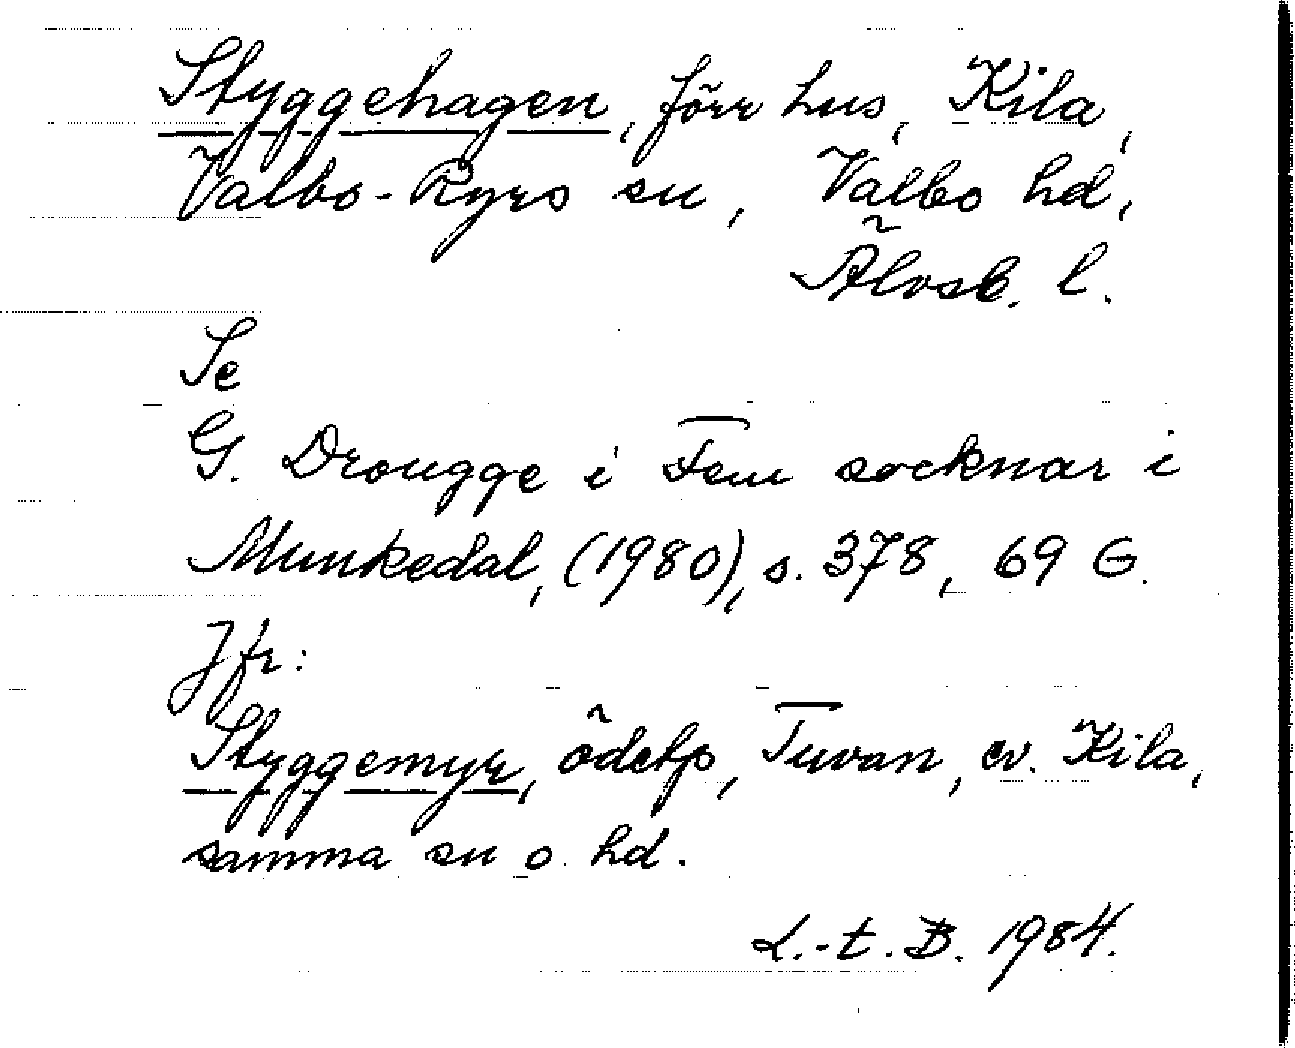 Styggehagen, förr hus, Kila,
Valbo-Ryrs sn, Valbo hd,
Älvsb. l.
Se
G. Drougge i Fem socknar i
Munkedal, (1980), s. 378, 69 G.
Jfr:
Styggemyr, ödetp, Tuvan, ev. Kila,
samma sn o. hd.
L.-t. B. 1984.